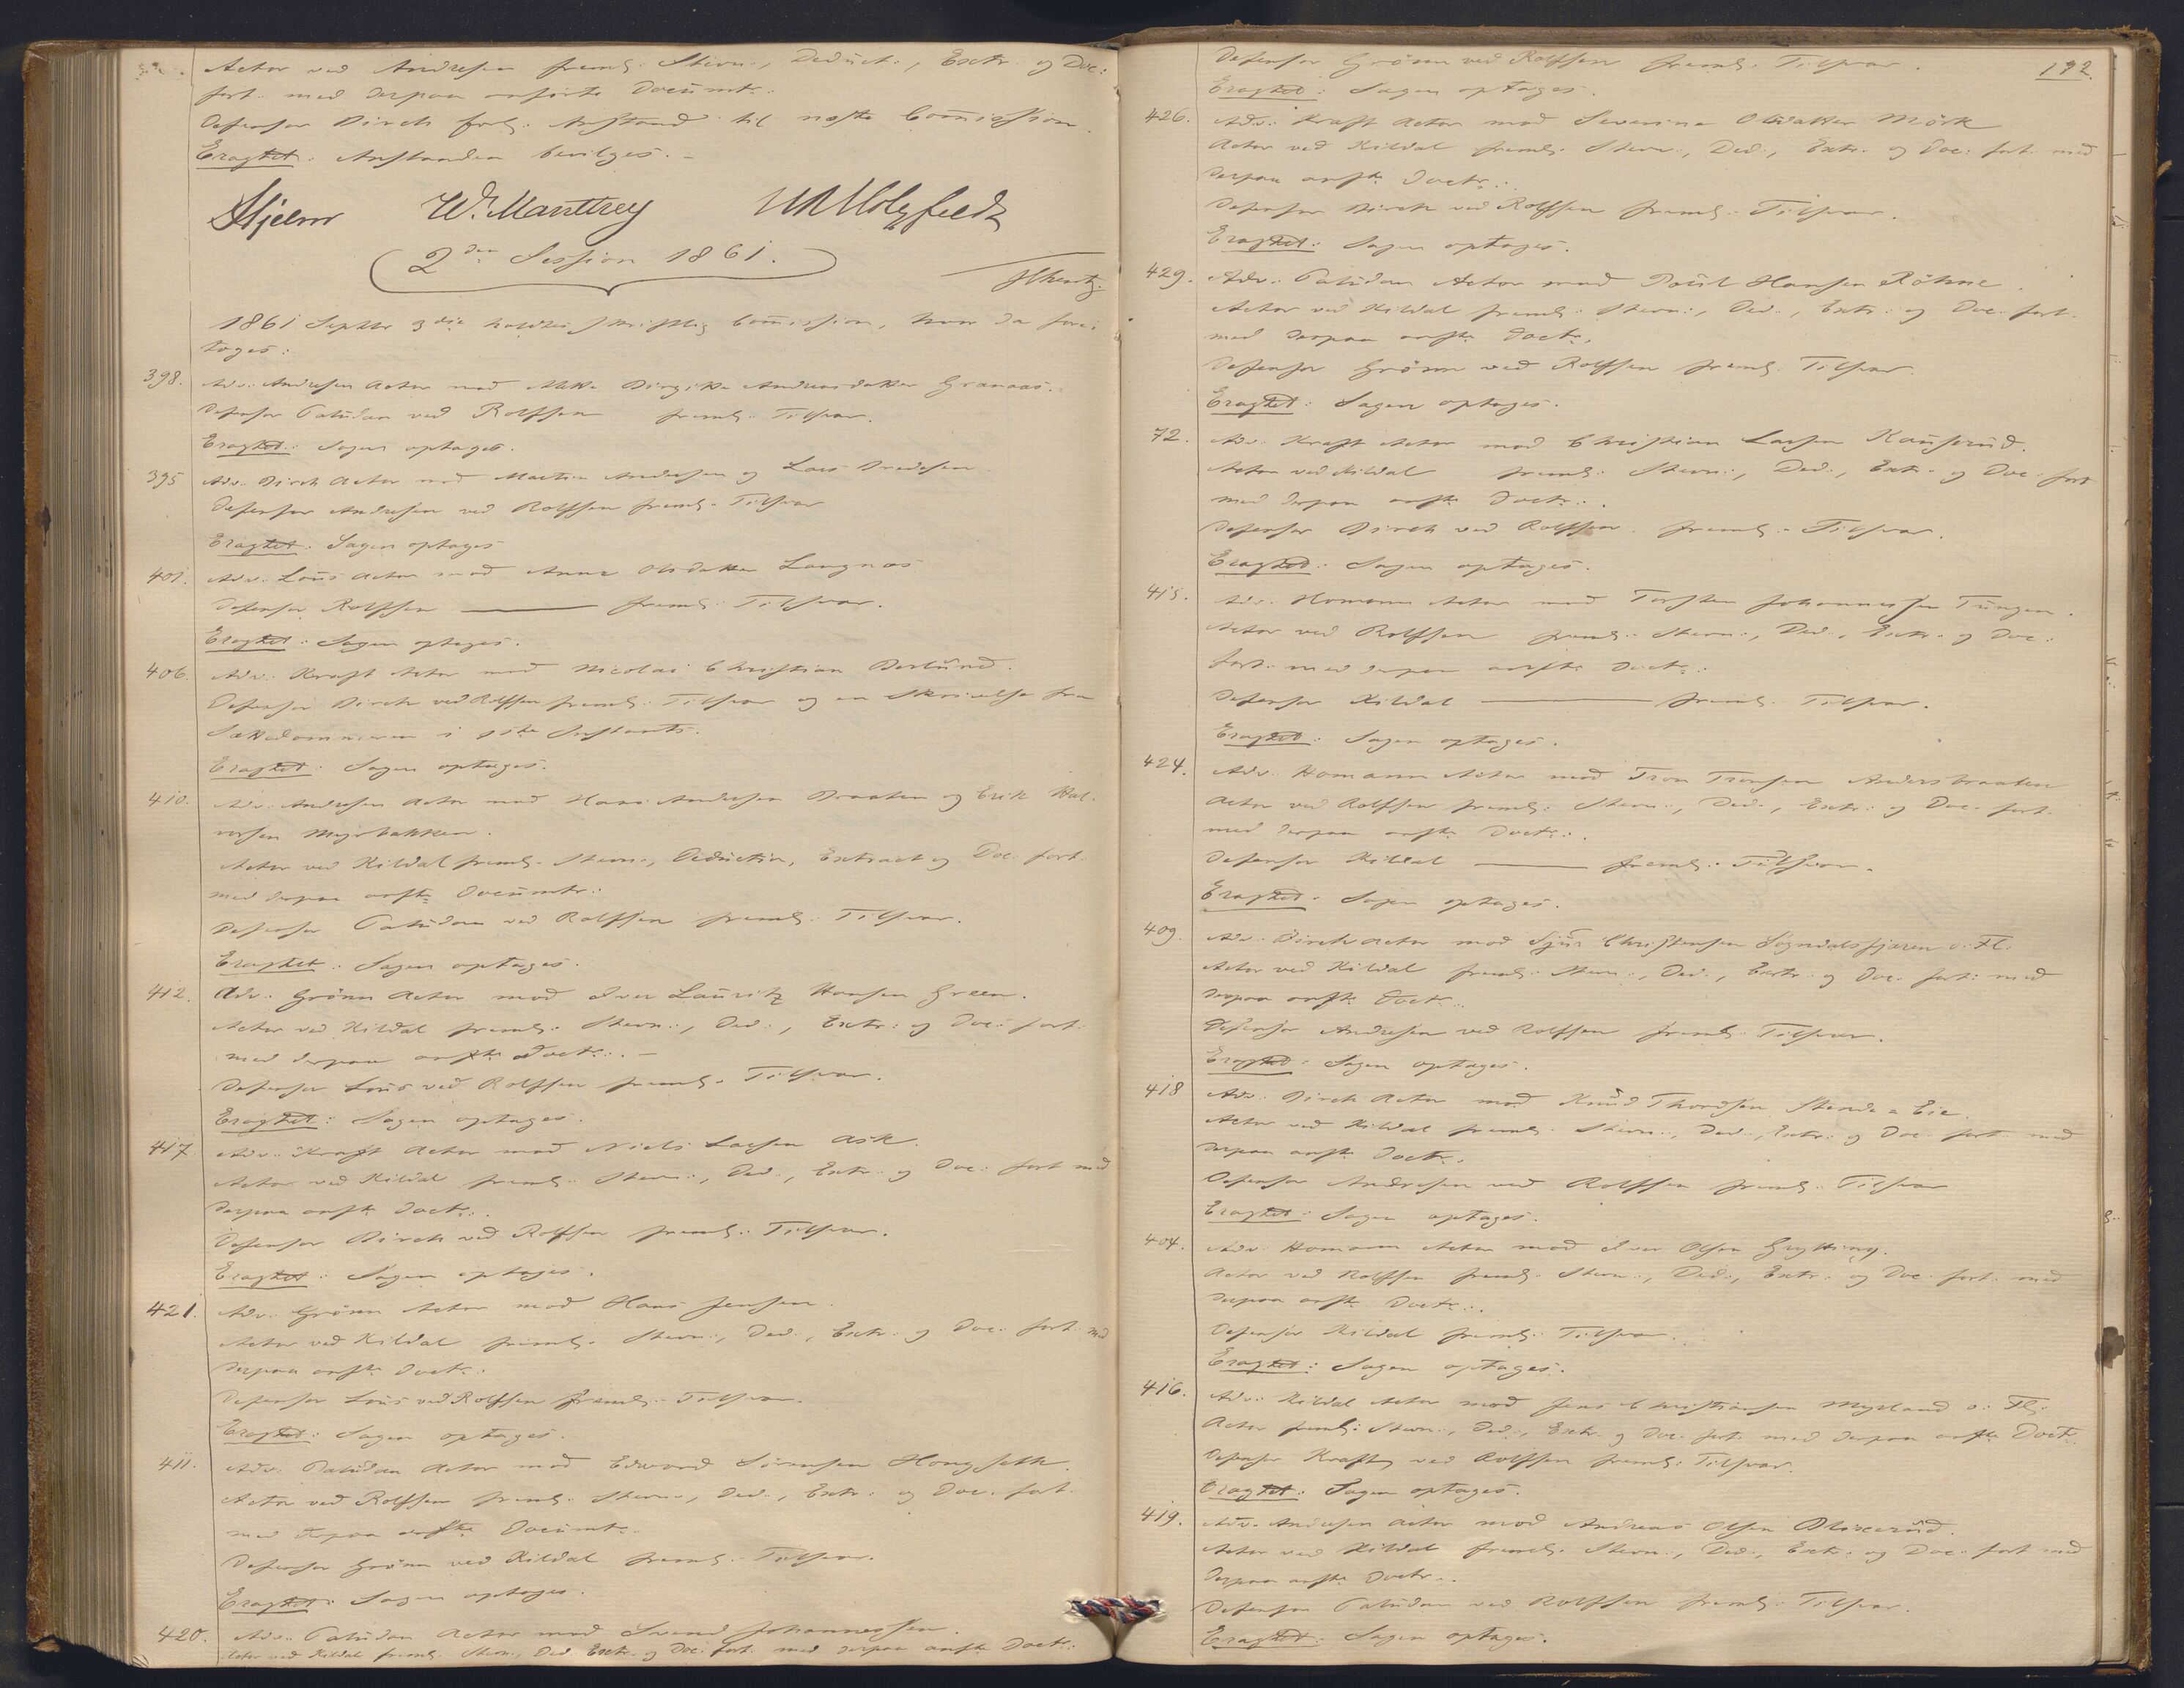 Actor ved Andresen freml: Stevn:, Deduct:, Extr: og Doc:
fort: med derpaa anførte Documtr:
Defensor Birch forl: Anstand til næste Commission.
Eragtet: Anstanden bevilges. –
Hjelm W. Manthey
2den Session 1861.
1861 Septbr 3die holdtes skriftlig Commission, hvor da fore-
toges:
398. Adv: Andresen Actor mod Andreasdatter Granaas.
Defensor Paludan ved Rolffsen freml: Tilsvar.
Eragtet: Sagen optages.
395 Adv: Birch Actor mod Martin Andersen og Lars
Defensor Andresen ved Rolffsen freml: Tilsvar
Eragtet: Sagen optages
401. Adv: Lous Actor mod Anne Olsdatter Langnæs
Defensor Rolffsen —— freml: Tilsvar.
Eragtet: Sagen optages.
406. Adv: Kraft Actor mod Nicolai Christian Berlund.
Defensor Birch ved Rolffsen freml: Tilsvar og en Skrivelse fra
Sættedommeren i 1ste Instants.
Eragtet: Sagen optages.
410. Adv: Andresen Actor mod Hans Andersen Braaten og Erik Hal-
vorsen Myrbakken.
Actor ved Kildal freml: Stevn:, Deduction, Extract og Doc: fort:
med derpaa anfte Documtr:
Defensor Paludan ved Rolffsen freml: Tilsvar.
Eragtet: Sagen optages.
412. Adv: Grønn Actor mod Iver Lauritz Hansen Green.
Actor ved Kildal freml: Stevn:, Ded:, Extr: og Doc: fort:
med derpaa anfte Doctr: –
Defensor Lous ved Rolffsen freml: Tilsvar.
Eragtet: Sagen optages.
417 Adv: Kraft Actor mod Niels Larsen Ask.
Actor ved Kildal freml: Stevn:, Ded:, Extr: og Doc: fort med
derpaa anfte Doctr:
Defensor Birch ved Rolffsen freml: Tilsvar.
Eragtet: Sagen optages.
421. Adv: Grønn Actor mod Hans Jensen.
Actor ved Kildal freml: Stevn:, Ded:, Extr: og Doc: fort: med
derpaa anfte Doctr:
Defensor Lous ved Rolffsen freml: Tilsvar.
Eragtet: Sagen optages.
411. Adv: Paludan Actor mod Edvard Sørensen Hougseth.
Actor ved Rolffsen freml: Stevn:, Ded:, Extr: og Doc: fort:
med derpaa anfte Documtr:
Defensor Grønn ved Kildal freml: Tilsvar.
Eragtet: Sagen optages.
420. Adv: Paludan Actor mod Svend Johannessen.
Actor ved Kildal freml: Stevn:, Ded: Extr: og Doc: fort: med derpaa anfte Doctr:
192.
Defensor Grønn ved Rolffsen freml: Tilsvar.
Eragtet: Sagen optages.
426. Adv: Kraft Actor mod Severine Olsdatter Mörk
Actor ved Kildal freml: Stevn:, Ded:, Extr: og Doc: fort: med
derpaa anfte Doctr:
Defensor Birch ved Rolffsen freml: Tilsvar.
Eragtet: Sagen optages.
429. Adv: Paludan Actor mod Poul Hansen Röhne.
Actor ved Kildal freml: Stevn:, Ded:, Extr: og Doc: fort:
med derpaa anfte Doctr:
Defensor Grønn ved Rolffsen freml: Tilsvar.
Eragtet: Sagen optages.
72. Adv: Kraft Actor mod Christian Larsen Kauserud.
Actor ved Kildal freml: Stevn:, Ded:, Extr: og Doc: fort
med derpaa anfte Doctr:
Defensor Birch ved Rolffsen freml: Tilsvar.
Eragtet: Sagen optages.
415. Adv: Homann Actor mod Torsten Johannessen Tungen.
Actor ved Rolffsen freml: Stevn:, Ded:, Extr: og Doc:
fort: med derpaa anfte Doctr:
Defensor Kildal —— freml: Tilsvar.
Eragtet: Sagen optages.
424. Adv: Homann Actor mod Tron Tronsen Andersbraaten
Actor ved Rolffsen freml: Stevn:, Ded:, Extr: og Doc: fort:
med derpaa anfte Doctr:
Defensor Kildal —— freml: Tilsvar.
Eragtet: Sagen optages.
409. Adv: Birch Actor mod Sjur Christensen Sogndalsfjæren o: Fl:
Actor ved Kildal freml: Stevn:, Ded:, Extr: og Doc: fort: med
derpaa anfte Doctr:
Defensor Andresen ved Rolffsen freml: Tilsvar.
Eragtet: Sagen optages.
418 Adv: Birch Actor mod Knud Thordsen Eie.
Actor ved Kildal freml: Stevn:, Ded:, Extr: og Doc: fort: med
derpaa anfte Doctr:
Defensor Andresen ved Rolffsen freml: Tilsvar
Eragtet: Sagen optages.
404. Adv: Homann Actor mod Iver Olsen Grytting.
Actor ved Rolffsen freml: Stevn:, Ded:, Extr: og Doc: fort: med
derpaa anfte Doctr:
Defensor Kildal freml: Tilsvar.
Eragtet: Sagen optages.
416. Adv: Kildal Actor mod Jens Christiansen Myrland o: Fl:
Actor freml: Stevn:, Ded:, Extr: og Doc: fort: med derpaa anfte Doctr:
Defensor Kraft ved Rolffsen freml: Tilsvar.
Eragtet: Sagen optages.
419. Adv: Andresen Actor mod Andreas Olsen Blixerud.
Actor ved Kildal freml: Stevn:, Ded:, Extr: og Doc: fort med
derpaa anfte Doctr:
Defensor Paludan ved Rolffsen freml: Tilsvar.
Eragtet: Sagen optages.